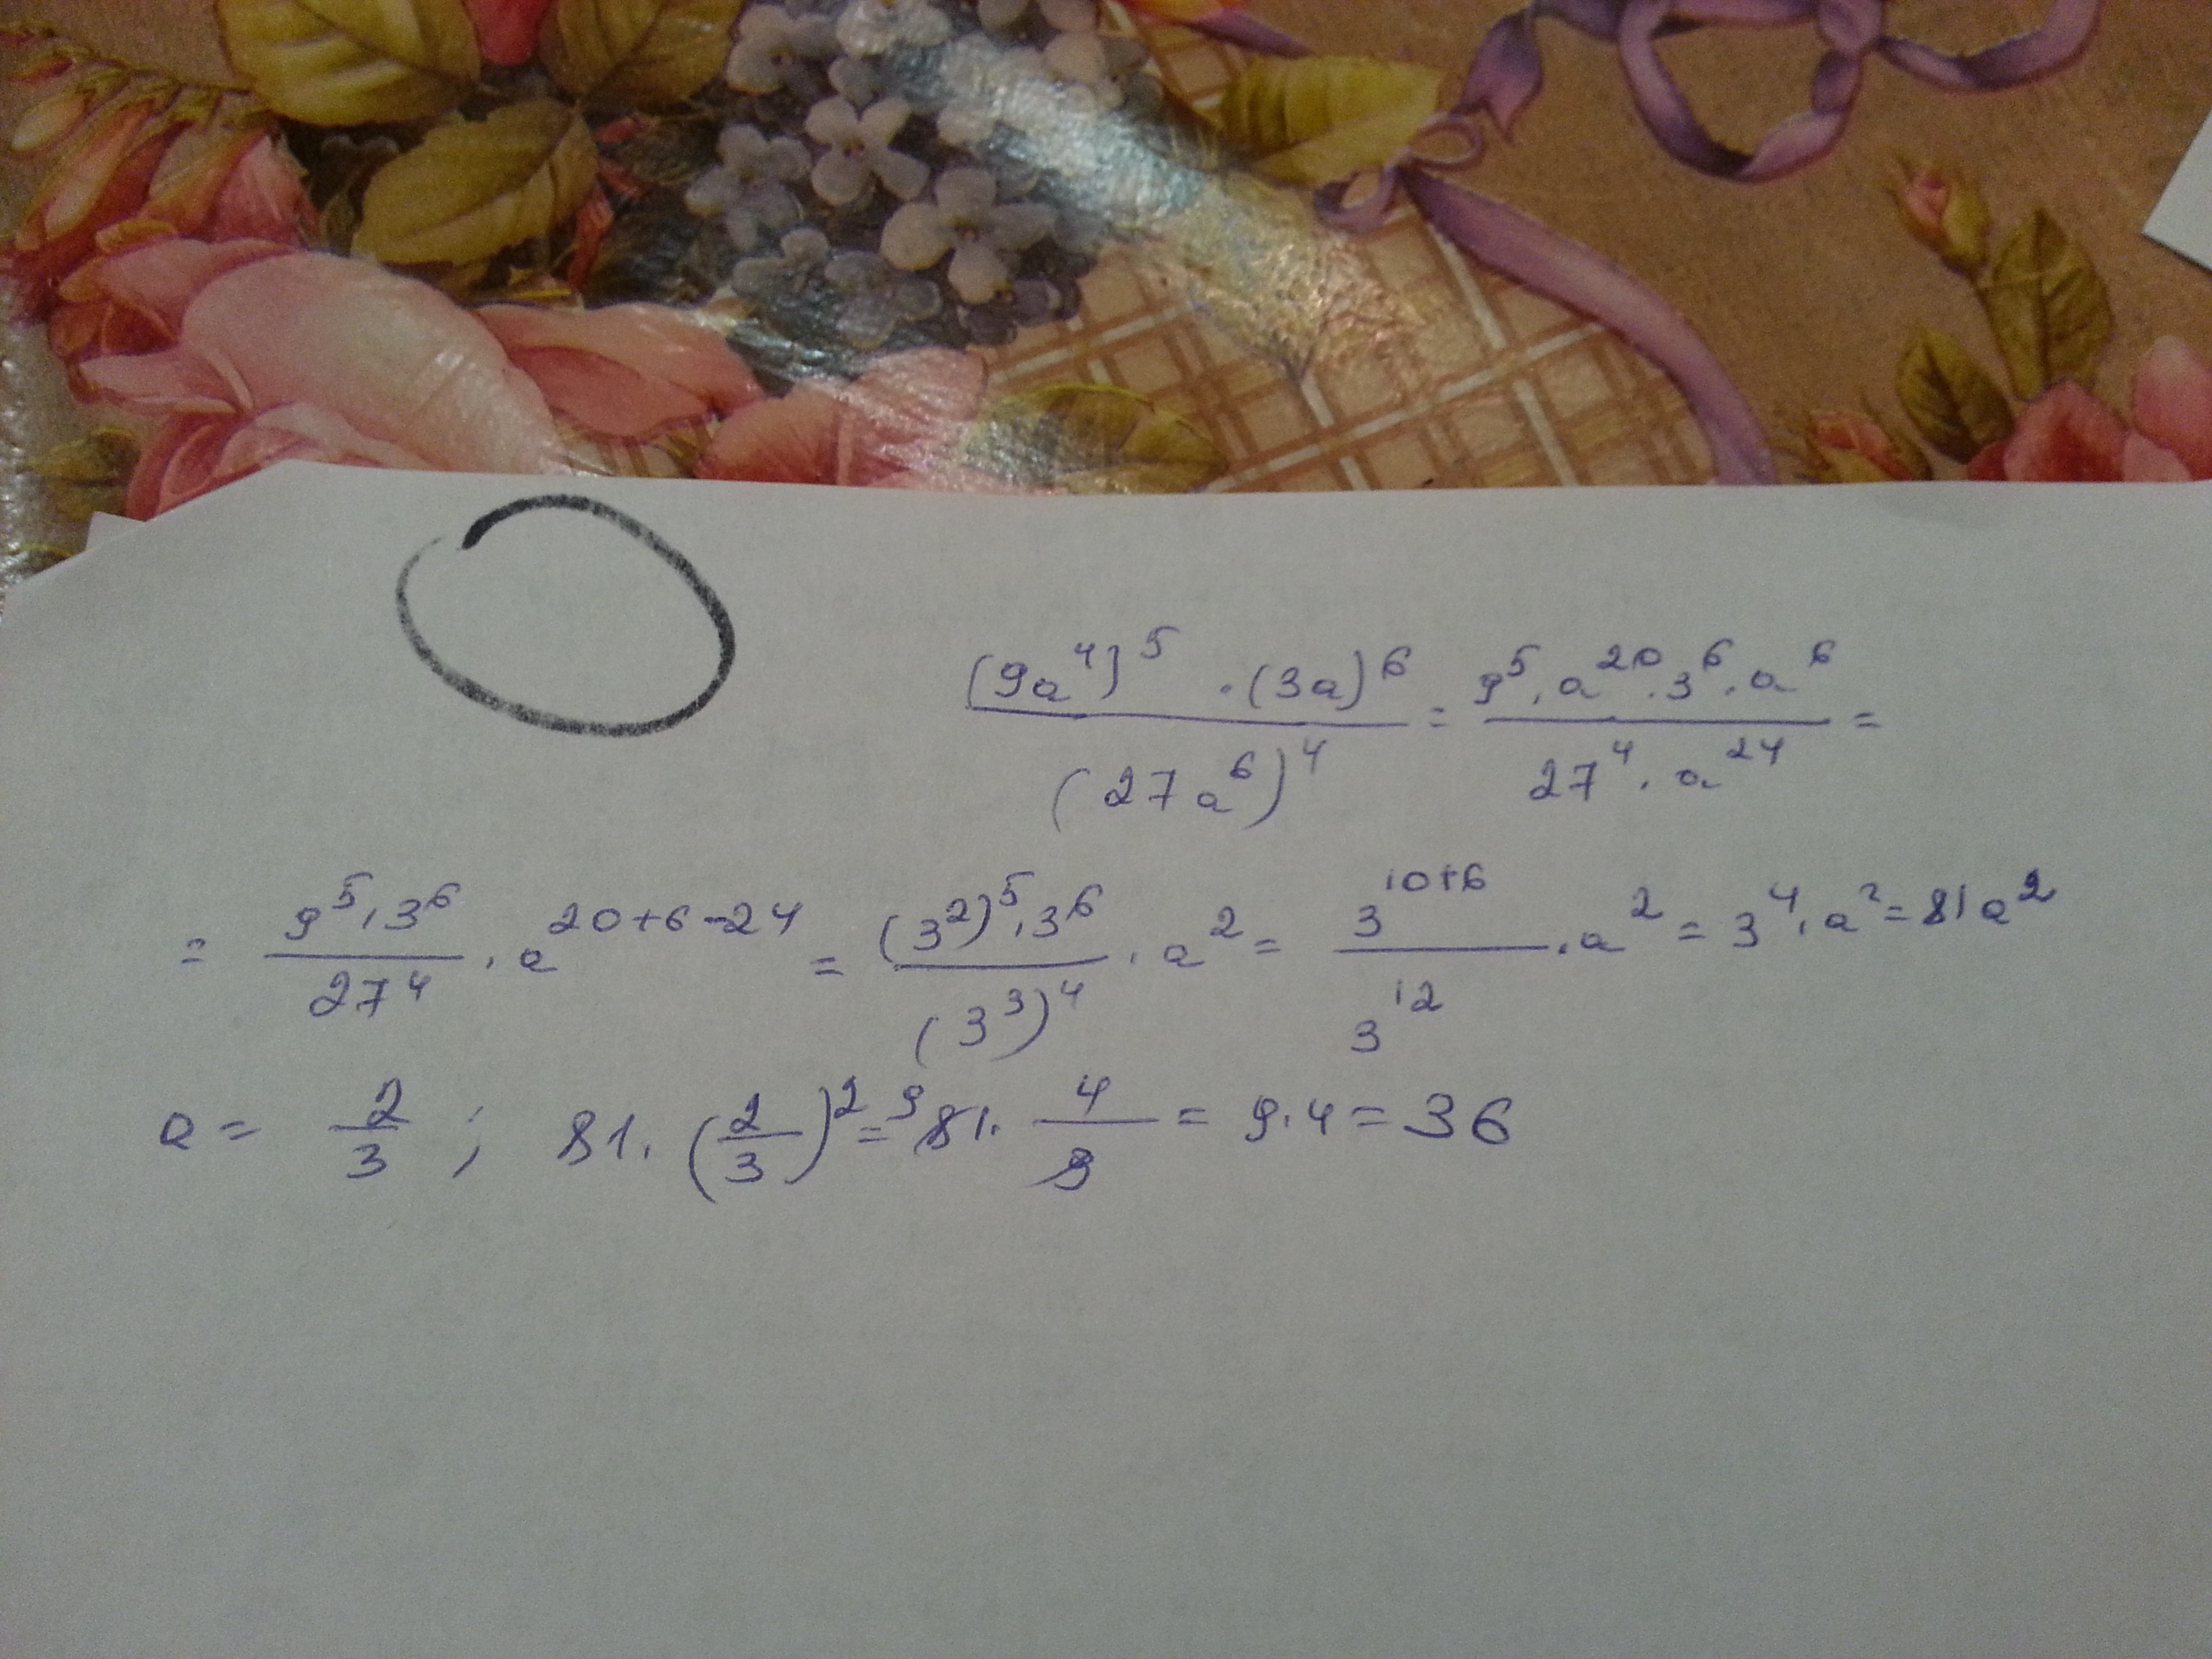 (9a⁴)⁵ · (3a)⁶ / (27a⁶)⁴ = 9⁵ · a²⁰ · 3⁶ · a⁶ / 27⁴ · a²⁴ =
= 9⁵ · 3⁶ / 27⁴ · a²⁰⁺⁶⁻²⁴ = (3²)⁵ · 3⁶ / (3³)⁴ · a² = 3¹⁰⁺⁶ / 3¹² · a² = 3⁴ · a² = 81a²
a = 2/3 ; 81 · (2/3)² = ⁹81 · 4/9 = 9 · 4 = 36